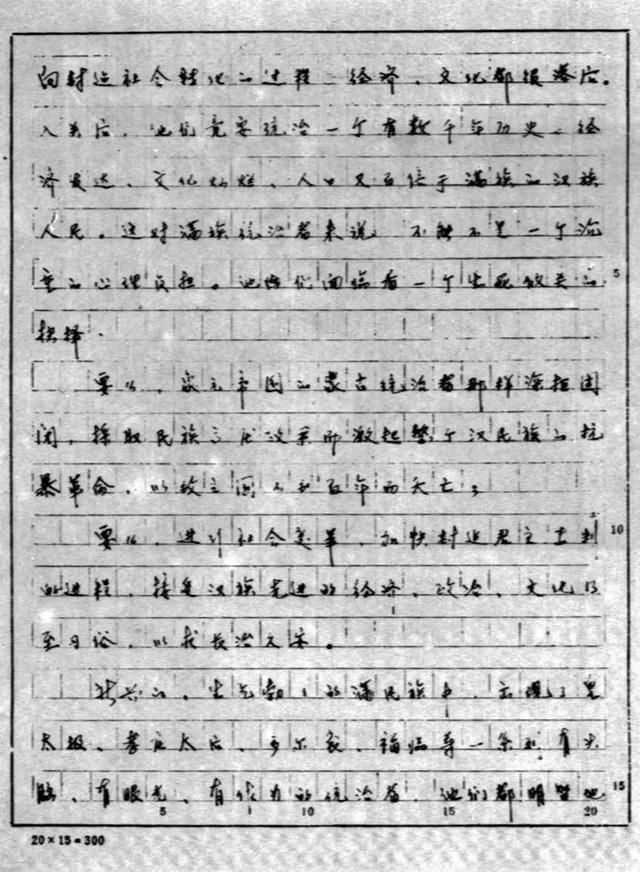 向封建社会转化的过程，经济、文化都很落后。
入关后，他们竟要统治一个有数千年历史、经
济发达、文化灿烂、人口又百倍于满族的汉族
人民。这对满族统治者来说，不能不是一个沉
重的心理负担。他们面临着一个生死攸关的
抉择。
要么，象元帝国的蒙古统治者那样深拒固
闭，採取民族高压政策而激起整个汉民族的抗
暴革命，以致立国不到百年而夭亡；
要么，进行社会变革，加快封建君主专制
的进程，接受汉族先进的经济、政治、文化以
至习俗，以求长治久安。
新兴的，生气勃勃的满民族中，出现了皇
太极、孝庄太后、多尔衮、福临等一系列有头
脑、有眼光、有作为的统治者，他们都明智地
5
10
15
5 10 15 20
20×15=300